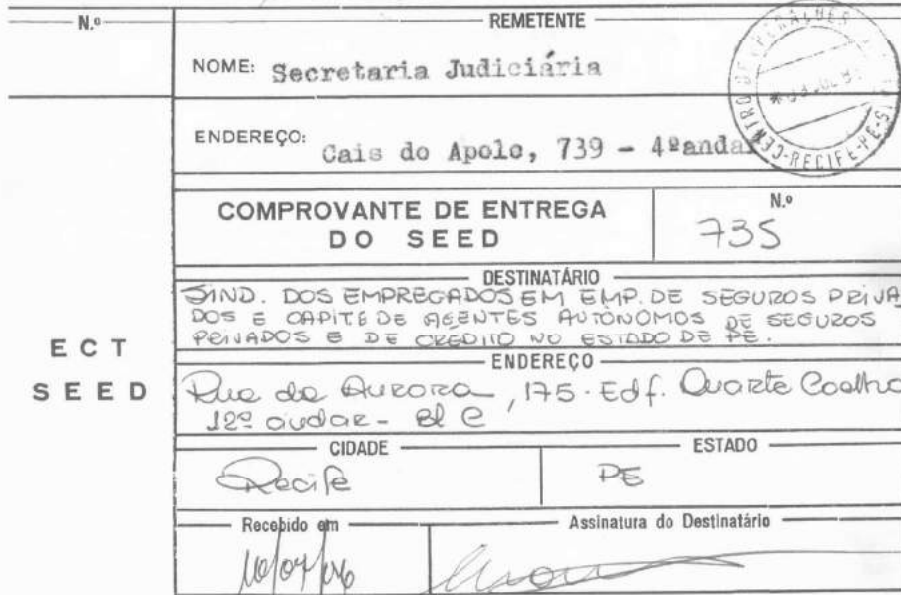 N.º
REMETENTE
NOME: Secretaria Judiciária
ENDEREÇO: Cais do Apolo, 739 - 4ºandar
CENTRO DE OPERAÇÕES
RECIFE-PE
COMPROVANTE DE ENTREGA
DO SEED
N.º
735
DESTINATÁRIO
SIND. DOS EMPREGADOS EM EMP. DE SEGUROS PRIVA
DOS E CAPITE DE AGENTES AUTÔNOMOS DE SEGUROS
PRIVADOS E DE CREDITO NO ESTADO DE PE.
ECT
SEED
ENDEREÇO
Rua da Aurora, 175. Edf. Duarte Coelho
12º andar - Bl C
CIDADE
Recife
ESTADO
PE
Recebido em
Assinatura do Destinatário